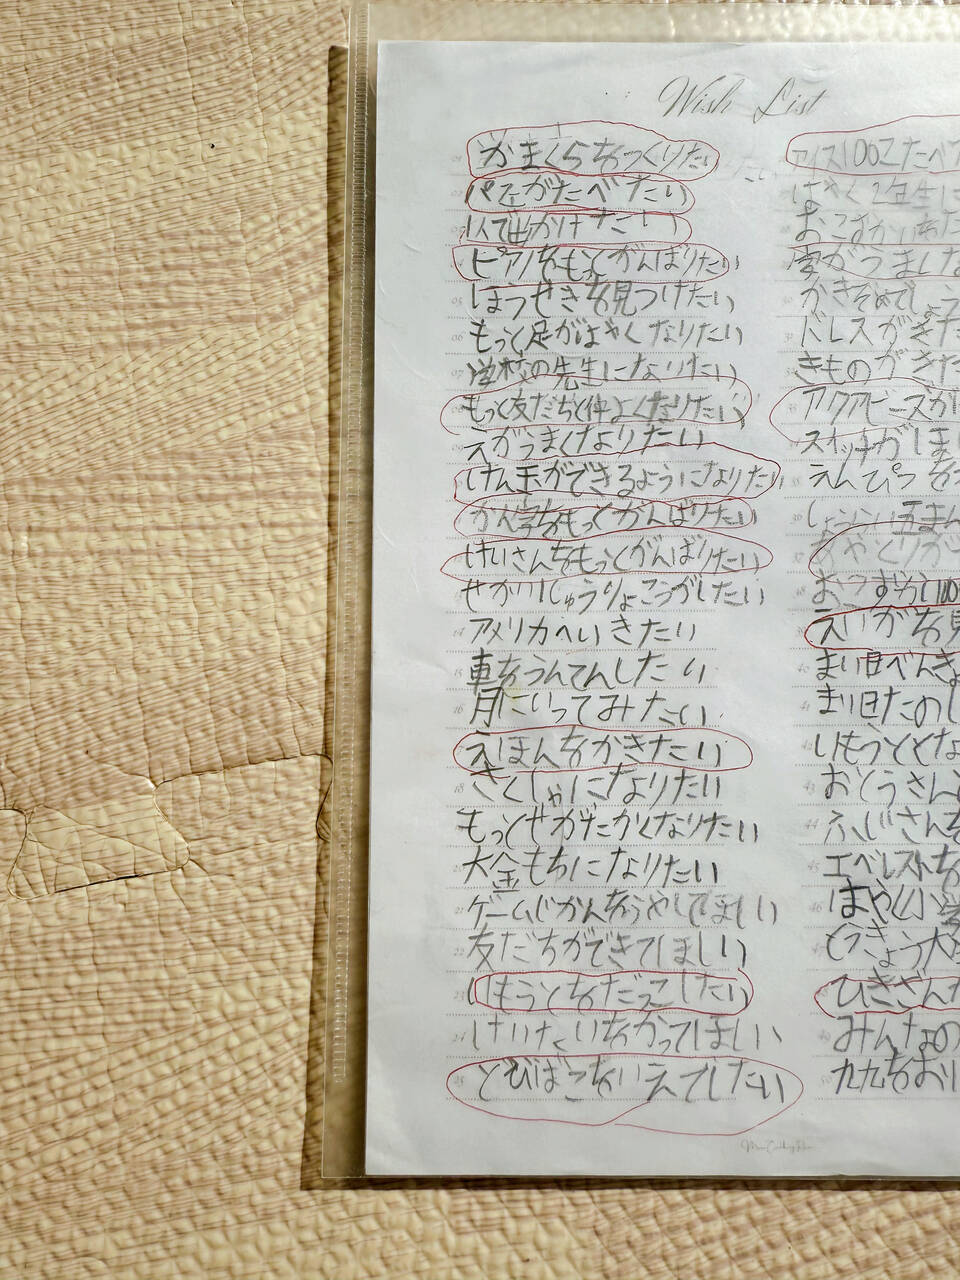 Wish List
かまくらをつくりたい
パフェがたべたい
1人で出かけたい
ピアノをもっとがんばりたい
ほうせきを見つけたい
もっと足がはやくなりたい
学校の先生になりたい
もっと友だちと仲よくなりたい
えがうまくなりたい
けん玉ができるようになりたい
かん字をもっとがんばりたい
けいさんをもっとがんばりたい
せかいじゅうりょこうがしたい
アメリカへいきたい
車をうんてんしたい
月にいってみたい
えほんをかきたい
さくしゃになりたい
もっとせがたかくなりたい
大金もちになりたい
ゲームじかんをふやしてほしい
友だちができてほしい
いもうとをだっこしたい
けいたいをかってほしい
とびばこをいえでしたい
アイス100こたべ
はやく2年生に
おこづかいをた
ドレスがきた
きものがきた
アクアビーズが
スイッチがほし
えんぴつを
しょうらい五まん
あやとりが
えいがを見
まい日べんきょ
まい日たのし
いもうととな
おとうさん
ふじさんを
エベレストを
はやく小学
とうきょう大
ひきざんが
みんなの
九九をおぼ